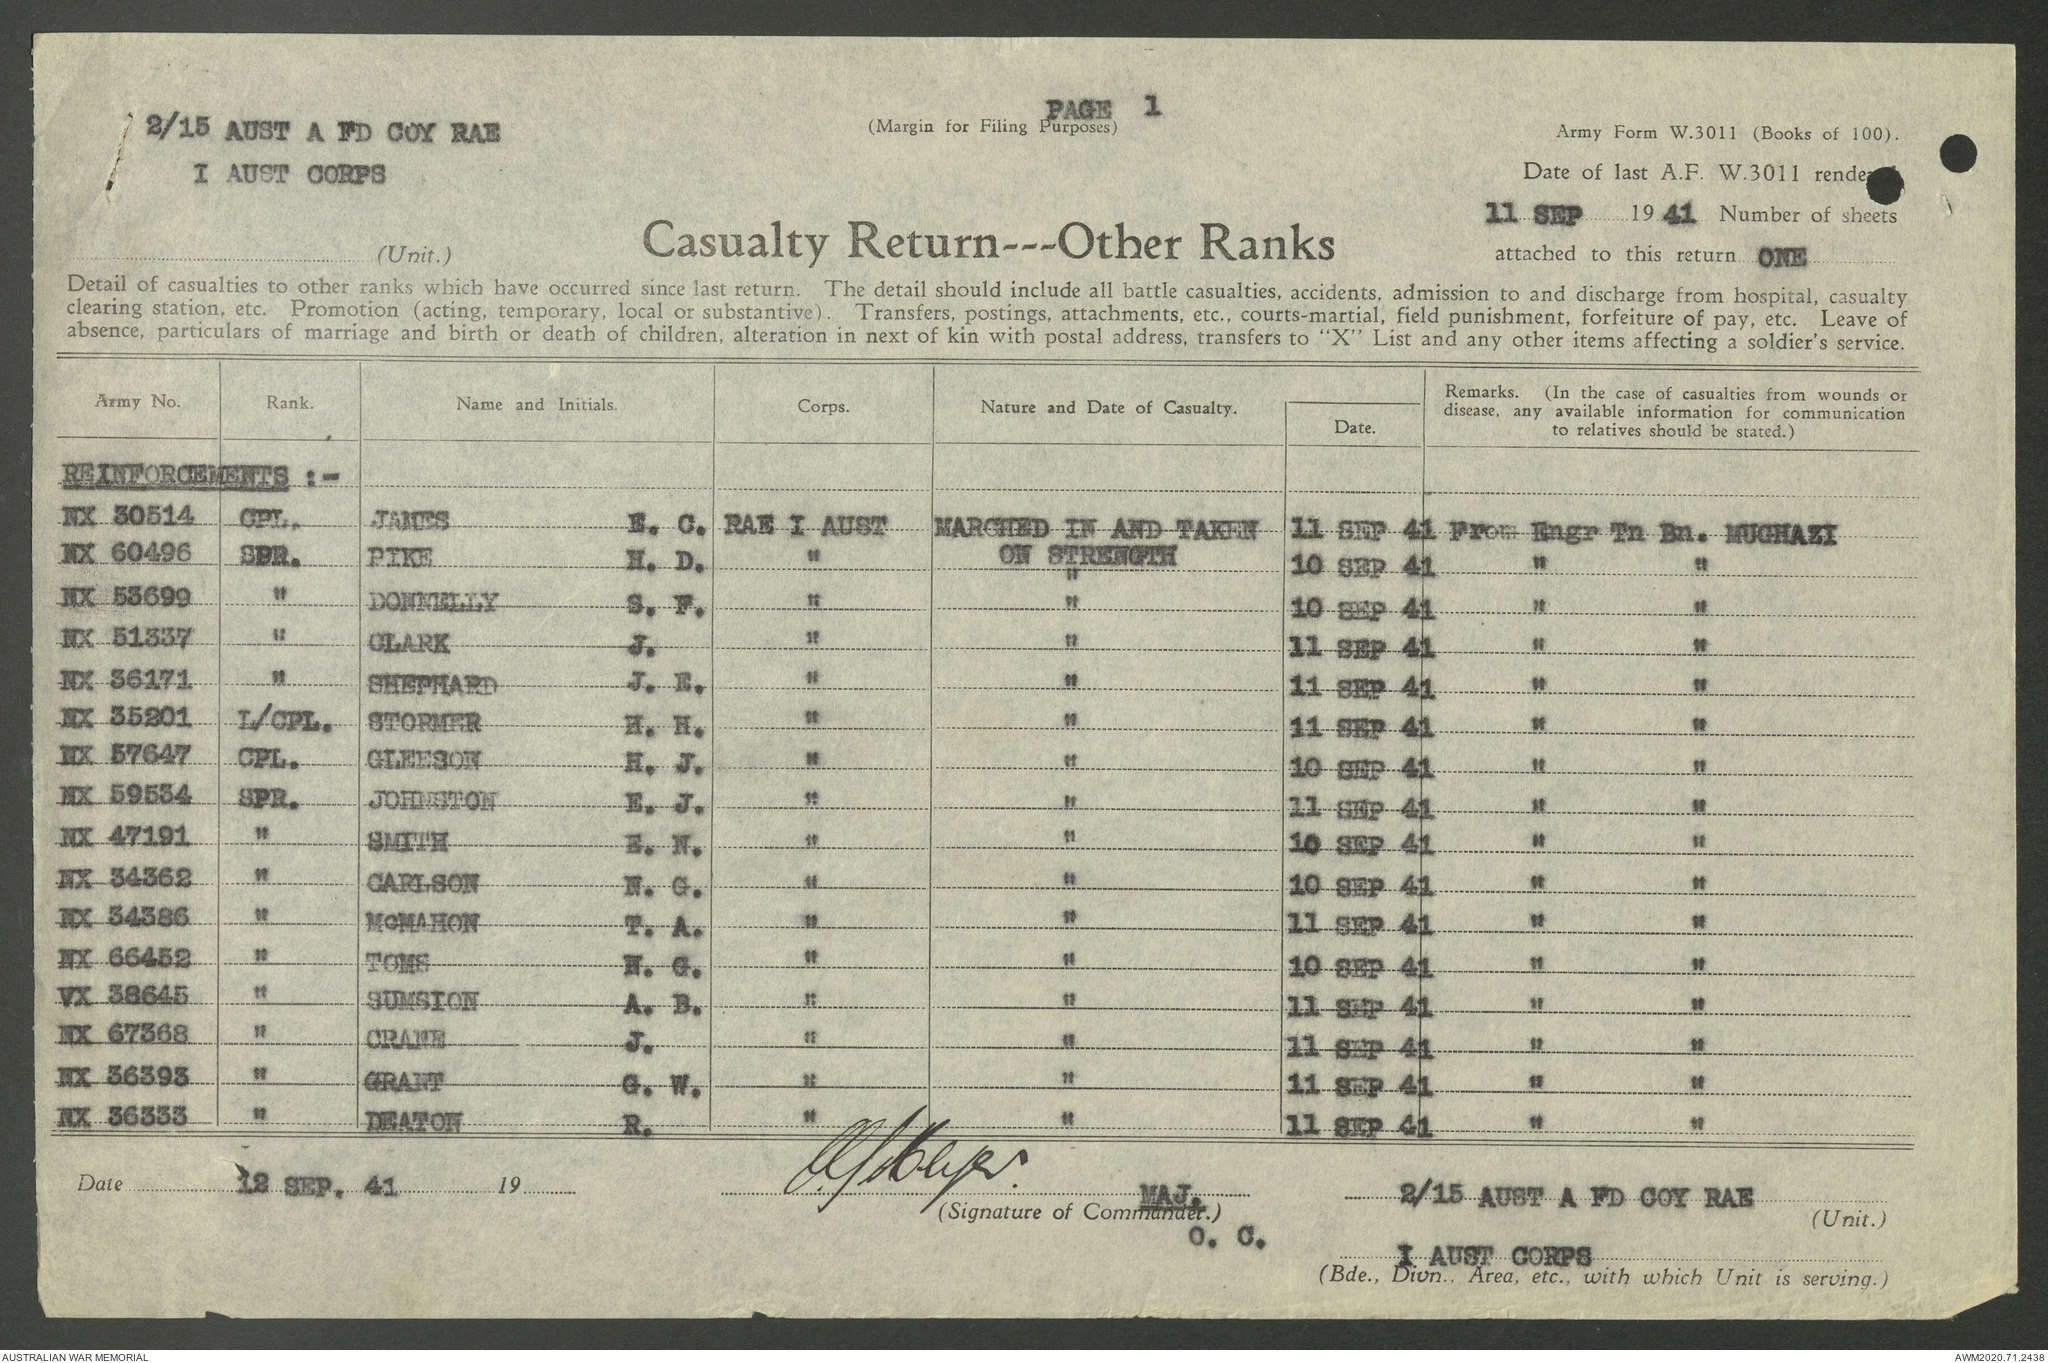 PAGE 1
2/15 AUST A FD COY RAE
(Margin for Filing Purposes)
Army Form W.3011 (Books of 100).
I AUST CORPS
Date of last A.F. W.3011
11 SEP 19 41 Number of sheets
(Unit.)
Casualty Return---Other Ranks
attached to this return ONE
Detail of casualties to other ranks which have occurred since last return. The detail should include all battle casualties, accidents, admission to and discharge from hospital, casualty
clearing station, etc. Promotion (acting, temporary, local or substantive). Transfers, postings, attachments, etc., courts-martial, field punishment, forfeiture of pay, etc. Leave of
absence, particulars of marriage and birth or death of children, alteration in next of kin with postal address, transfers to "X" List and any other items affecting a soldier's service.
Army No. Rank. Name and Initials. Corps. Nature and Date of Casualty. Date. Remarks. (In the case of casualties from wounds or
disease, any available information for communication
to relatives should be stated.)
REINFORCEMENTS :-
NX 30514 CPL. JAMES E. C. RAE I AUST MARCHED IN AND TAKEN 11 SEP 41 From Engr Tn Bn. MUGHAZI
ON STRENGTH
NX 60496 SPR. PIKE H. D. " " 10 SEP 41 " "
NX 53699 " DONNELLY S. F. " " 10 SEP 41 " "
NX 51337 " CLARK J. " " 11 SEP 41 " "
NX 36171 " SHEPHARD J. E. " " 11 SEP 41 " "
NX 35201 L/CPL. STORMER H. H. " " 11 SEP 41 " "
NX 57647 CPL. GLEESON H. J. " " 10 SEP 41 " "
NX 59534 SPR. JOHNSTON E. J. " " 11 SEP 41 " "
NX 47191 " SMITH E. N. " " 10 SEP 41 " "
NX 34362 " CARLSON N. G. " " 10 SEP 41 " "
NX 34386 " McMAHON T. A. " " 11 SEP 41 " "
NX 66452 " TOMS N. G. " " 10 SEP 41 " "
VX 38645 " SUMSION A. B. " " 11 SEP 41 " "
NX 67368 " CRANE J. " " 11 SEP 41 " "
NX 36393 " GRANT G. W. " " 11 SEP 41 " "
NX 36333 " DEATON R. " " 11 SEP 41 " "
Date 12 SEP. 41 19
MAJ.
(Signature of Commander.)
O. C.
2/15 AUST A FD COY RAE
(Unit.)
I AUST CORPS
(Bde., Divn., Area, etc., with which Unit is serving.)
AUSTRALIAN WAR MEMORIAL
AWM2020.71.2438